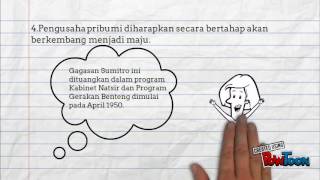 4.Pengusaha pribumi diharapkan secara bertahap akan
berkembang menjadi maju.
Gagasan Sumitro ini
dituangkan dalam program
Kabinet Natsir dan Program
Gerakan Benteng dimulai
pada April 1950.
CREATED USING
POWTOON